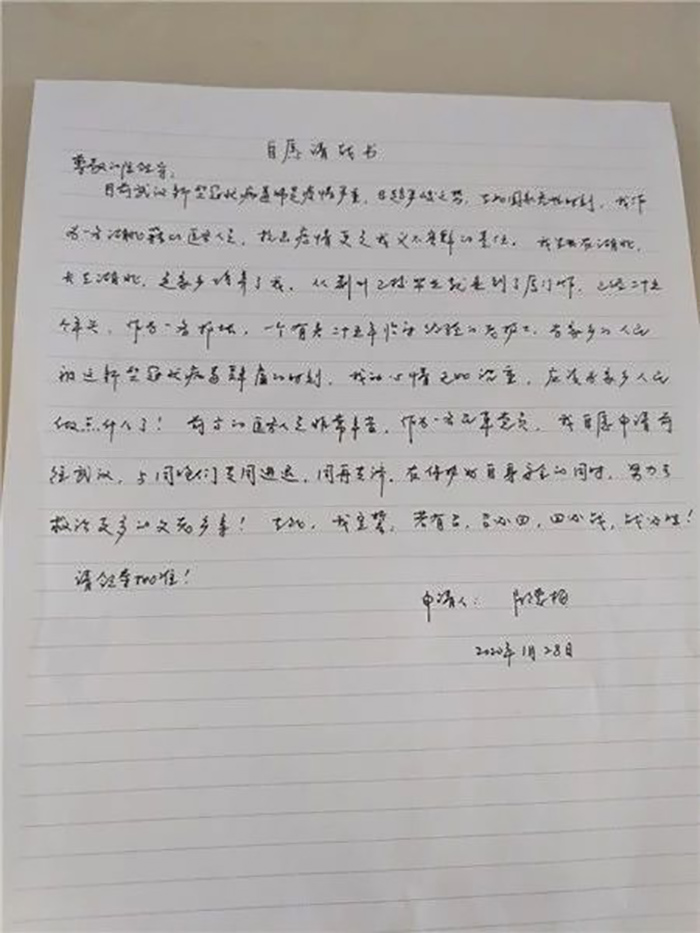 自愿请战书
尊敬的医领导:
目前武汉新型冠状病毒肺炎疫情严重,且趋严峻之势,在此国家危难时刻,我作
为一名湖北籍的医务人员,抗击疫情更是我义不容辞的责任。我生在湖北,
长在湖北,是家乡培养了我,从荆州卫校毕业就来到了厦门工作,已经二十五
个年头,作为一名护士,一个有着二十五年临床经验的老护士,当家乡的人民
被这新型冠状病毒肆虐的时刻,我的心情无比沉重,应该为家乡人民
做点什么了!前方的医务人员非常辛苦,作为一名共产党员,我自愿申请前
往武汉,与同他们共同进退,同舟共济,在保护好自身安全的同时,努力去
救治更多的父老乡亲!在此,我宣誓,若有召,召必回,回必战,战必胜!
请领导批准!
申请人:
2020年1月28日